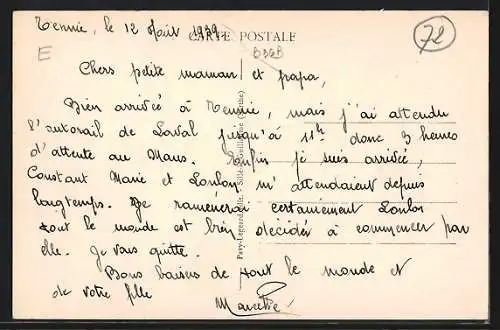 Tennie, le 12 Août 1939
CARTE POSTALE
72
E
Chers petite maman et papa,
Bien arrivée à Tennie, mais j'ai attendu
l'autorail de Laval jusqu'à 11h donc 3 heures
d'attente au Mans. Enfin je suis arrivée,
Constant Marie et Loulou m'attendaient depuis
longtemps. Je ramènerai certainement Loulou
tout le monde est bien décidér à commencer par
elle. Je vous quitte.
Bons baisers de tout le monde et
de votre fille
Marcelle